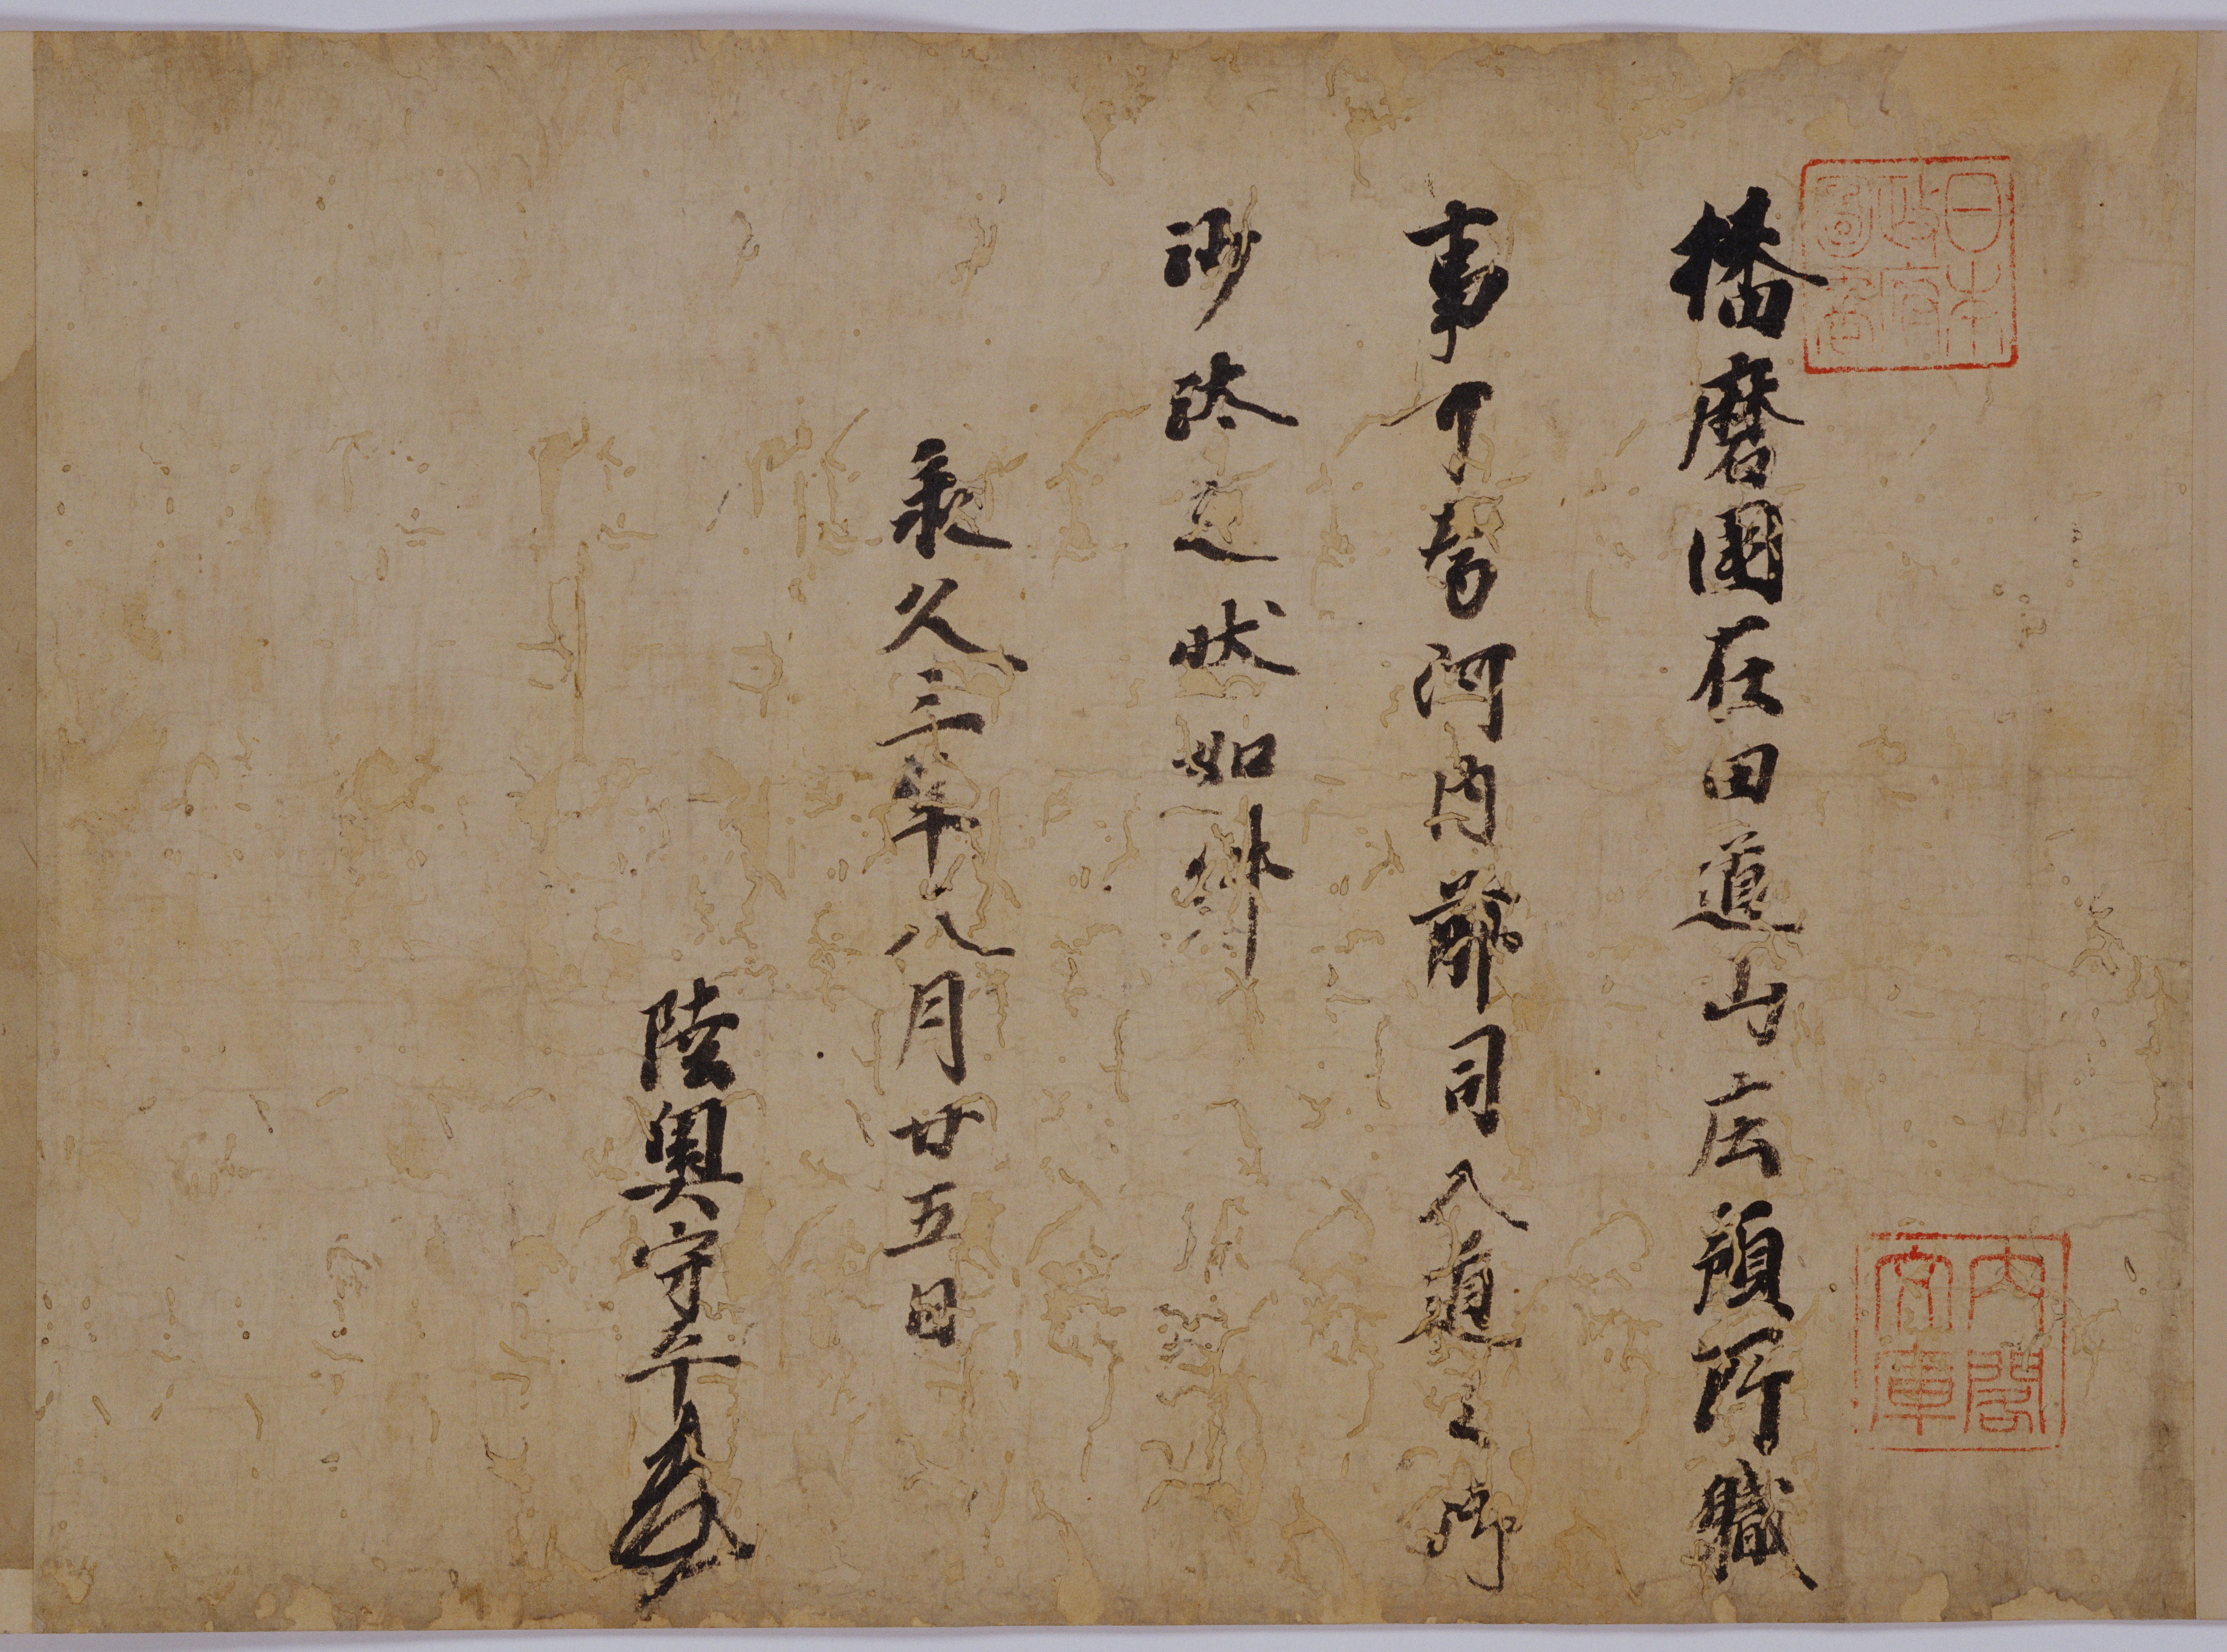 日本
政府
圖書
播磨國在田道山庄預所職
事可為河内前司入道之御
沙汰之状如件
承久三年八月廿五日
陸奥守平
内閣
文庫